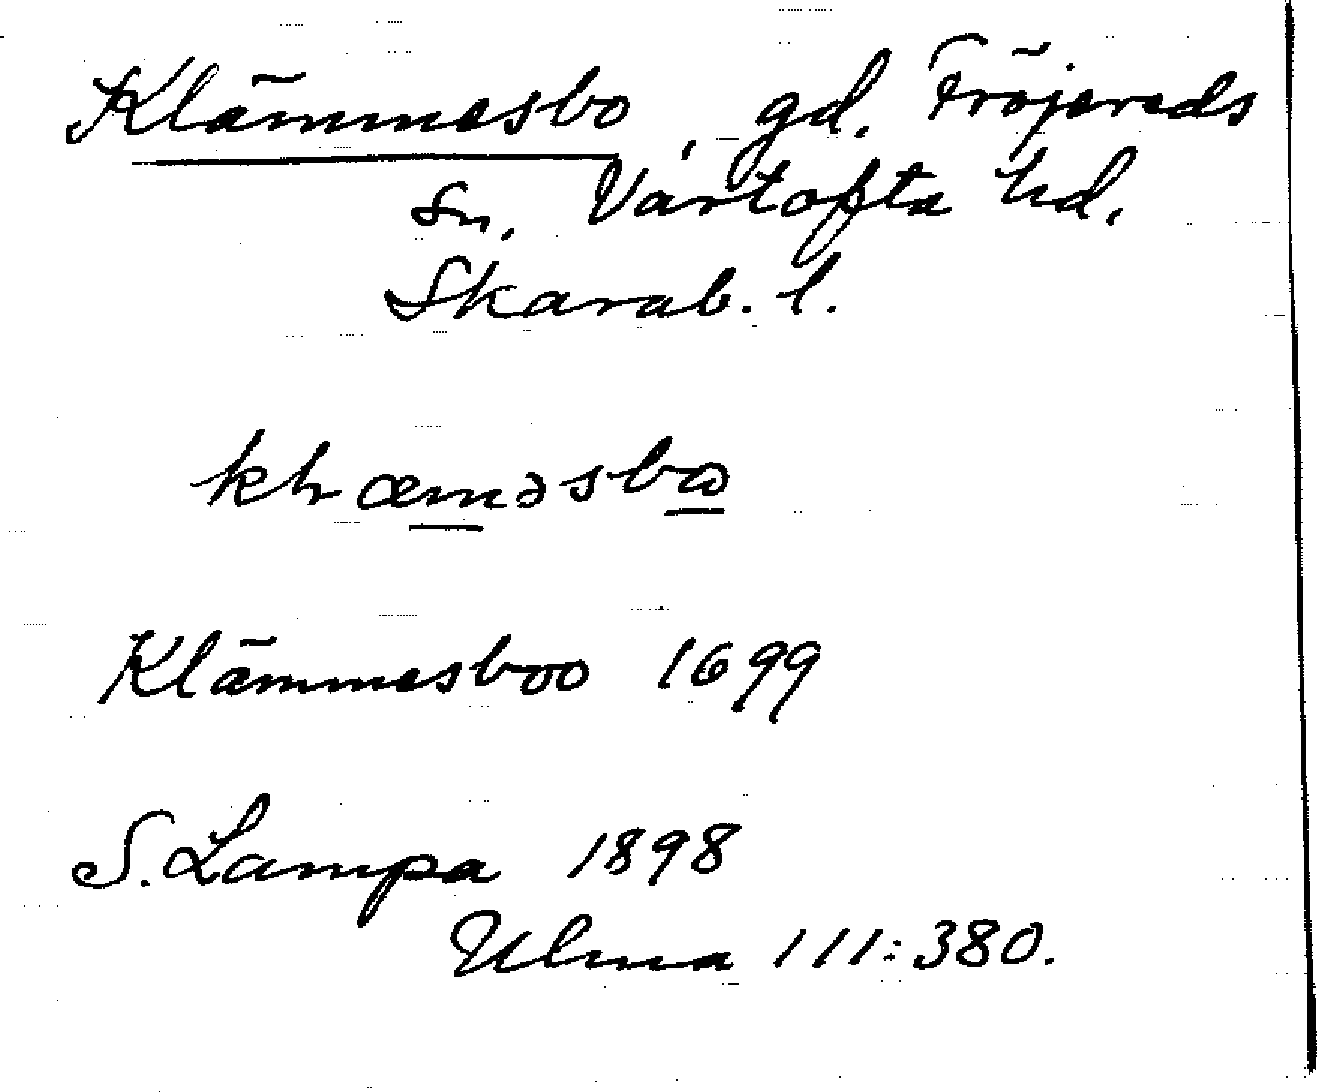 Klämmesbo, gd. Fröjereds
sn. Vartofta hd.
Skarab. l.
Klämmesboo 1699
S. Lampa 1898
Ulma 111:380.